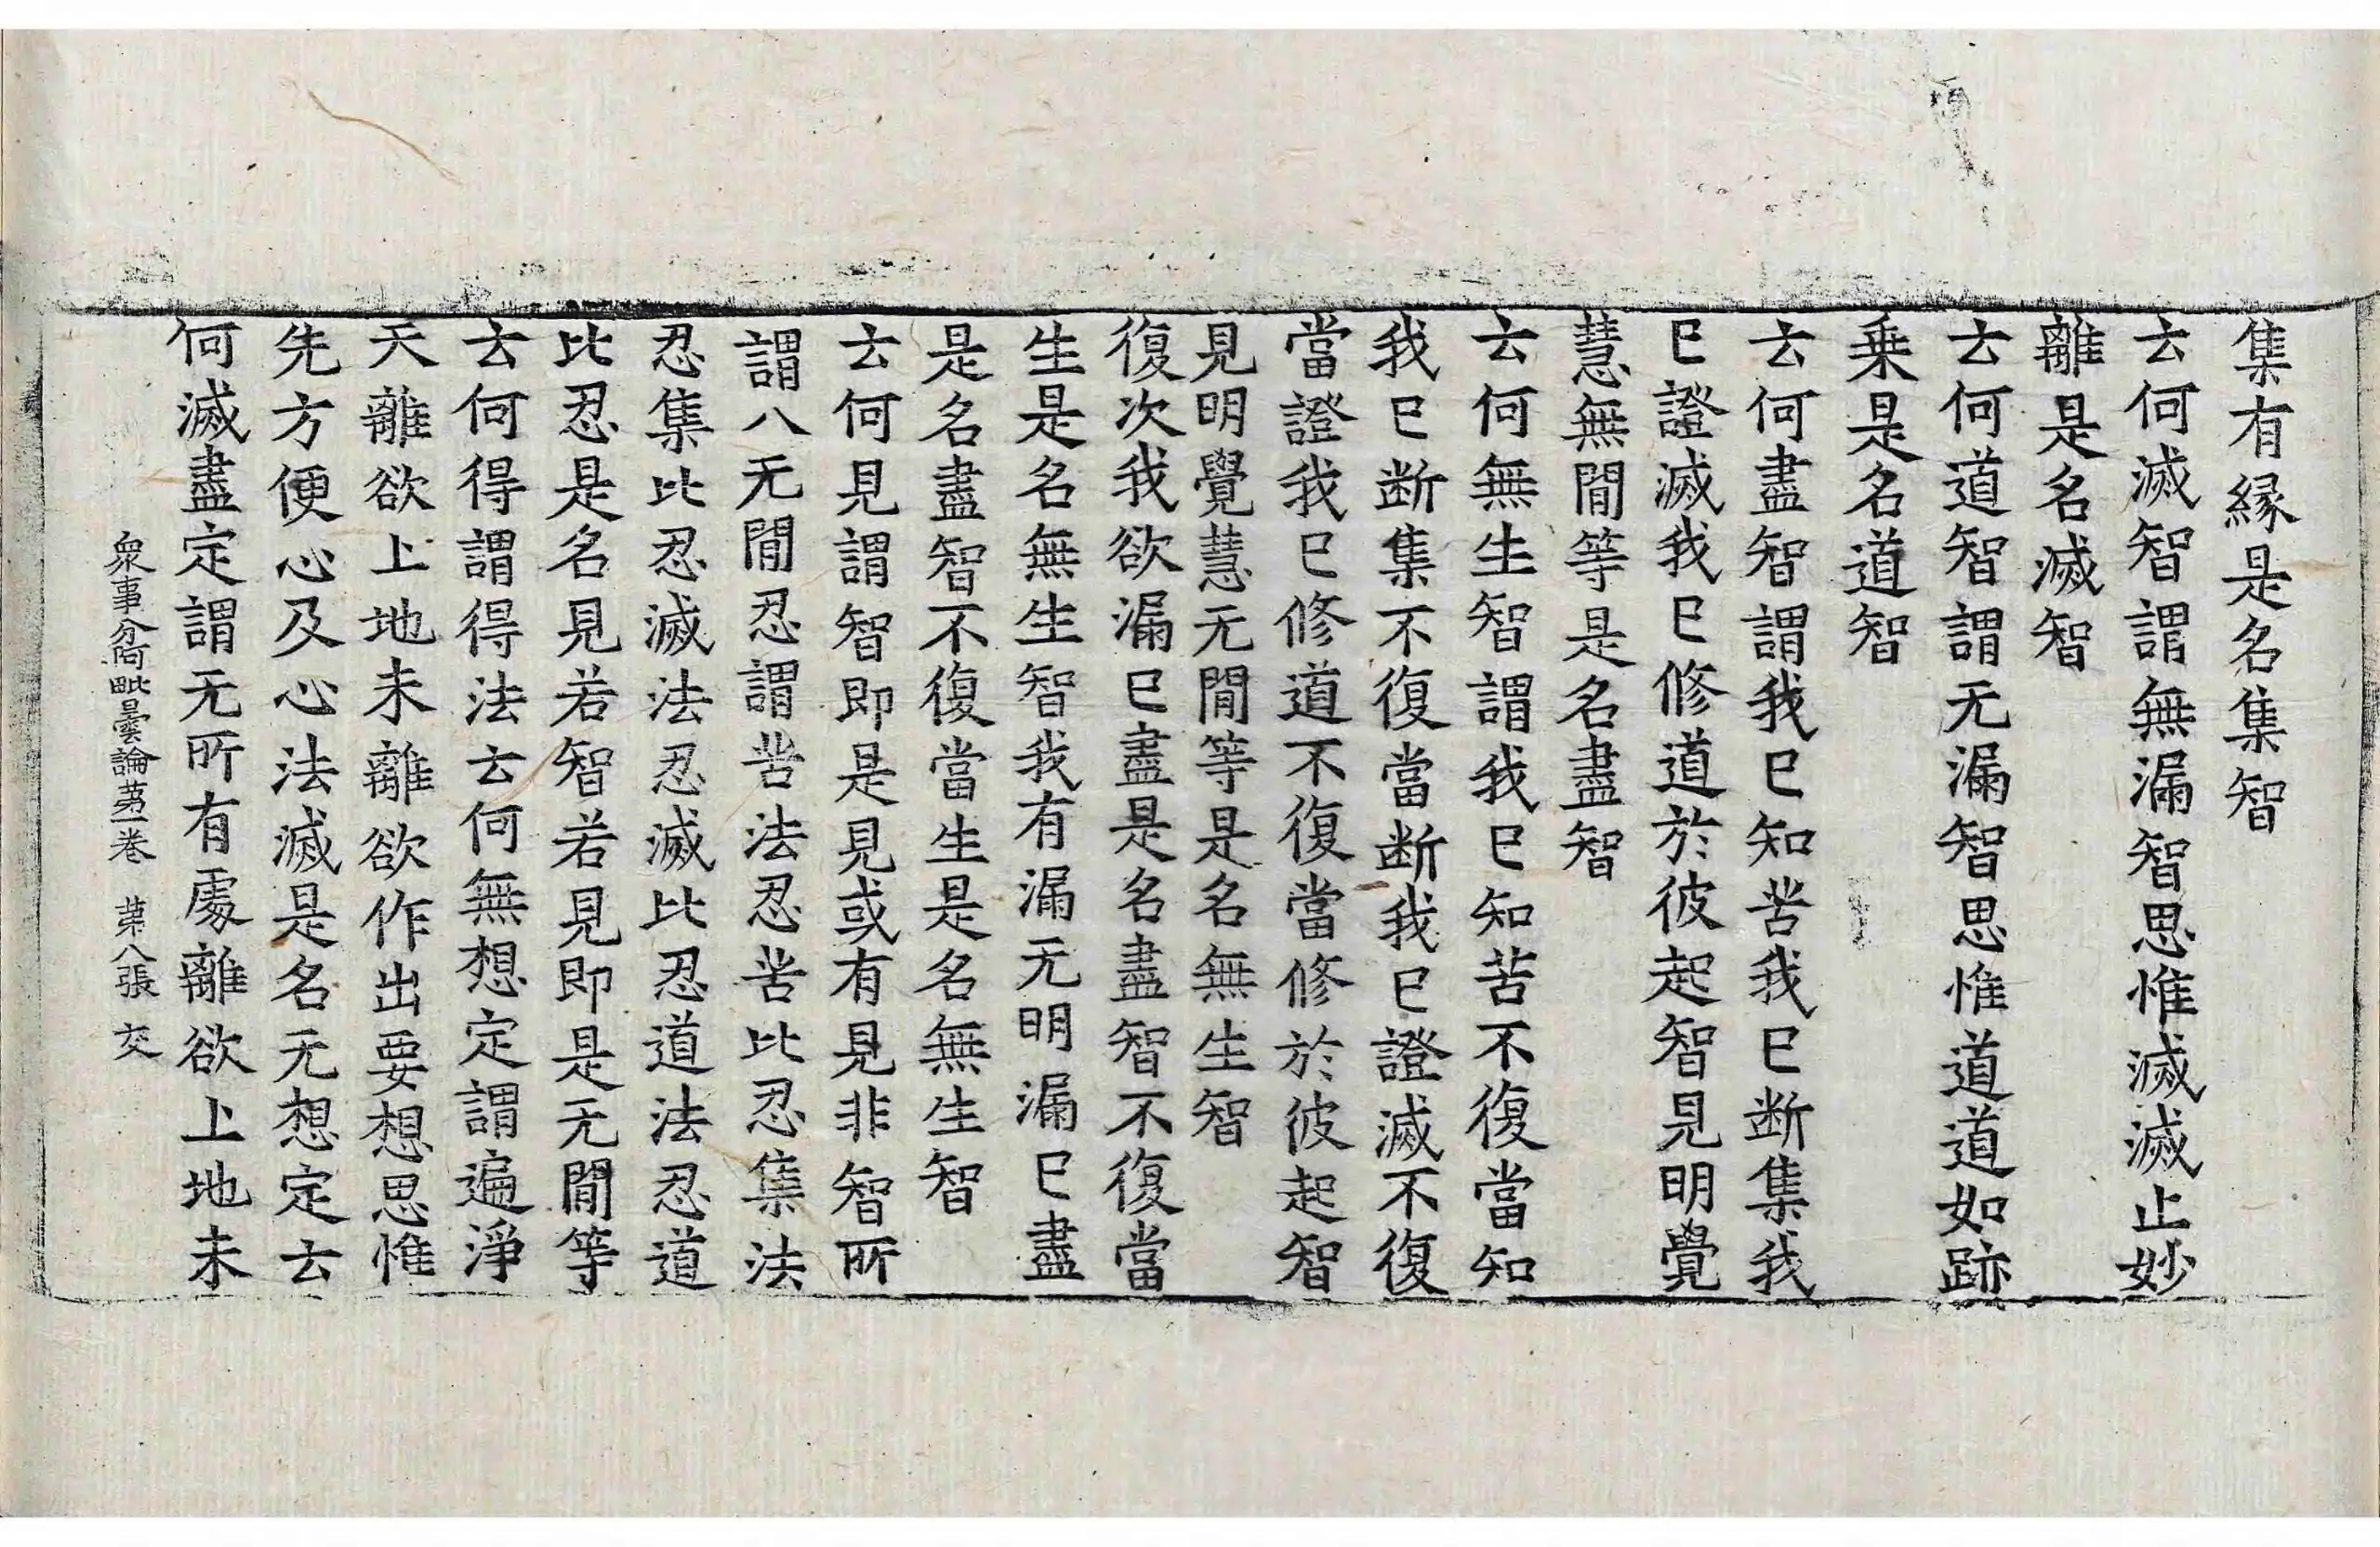 集有縁是名集智
云何滅智謂無漏智思惟滅滅止妙
離是名滅智
云何道智謂无漏智思惟道道如跡
乗是名道智
云何盡智謂我巳知苦我巳断集我
巳證滅我巳修道於彼起智見明覺
慧無閒等是名盡智
云何無生智謂我巳知苦不復當知
我巳断集不復當断我巳證滅不復
當證我巳修道不復當修於彼起智
見明覺慧无閒等是名無生智
復次我欲漏巳盡是名盡智不復當
生是名無生智我有漏无明漏巳盡
是名盡智不復當生是名無生智
云何見謂智即是見或有見非智所
謂八无閒忍謂苦法忍苦比忍集法
忍集比忍滅法忍滅比忍道法忍道
比忍是名見若智若見即是无閒等
云何得謂得法云何無想定謂遍淨
天離欲上地未離欲作出要想思惟
先方便心及心法滅是名无想定云
何滅盡定謂无所有處離欲上地未
衆事分阿毗曇論苐一卷 苐八張 交